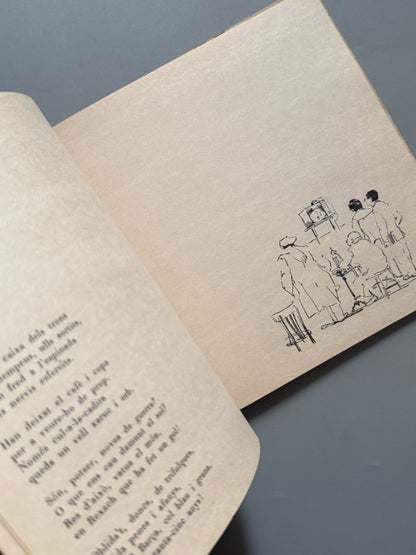 caixa dels trons
sentit,
fred a l'espinada
nervis esfereït.
Han deixat el cafè i copa
per a veure-ho de prop.
Només cul-a-la-cadira
queda un vell xaruc i orb.
Són, potser, noves de guerra?
O que ens cau damunt el sol?
Res d'això, vatua el món,
en Rexach que ha fet un gol!
doncs, de trifolques,
penes i afanys,
Barça, cel blau i grana,
anys?